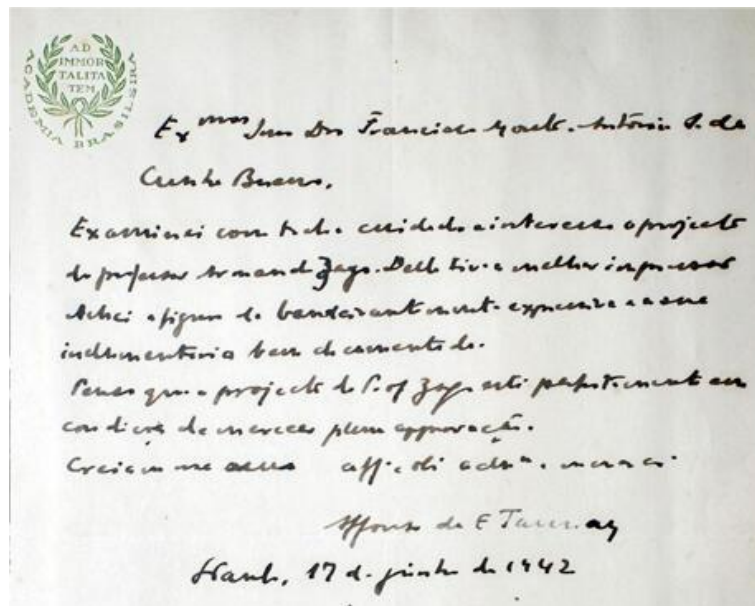 AD
IMMOR
TALITA
TEM
ACADEMIA BRASILEIRA
Exmos Snrs Drs Francisco Antonio P. da
Cunha Bueno,
Examinei com todo o cuidado e interesse o projecto
do professor Armando Zago. Delle tive a melhor impressão
Achei a figura do bandeirante muito expressiva e a sua
indumentaria bem documentada.
Penso que o projecto do Prof Zago está perfeitamente em
condições de merecer plena approvação.
Creiam me
Affonso de E Taunay
S Paulo, 17 de junho de 1942